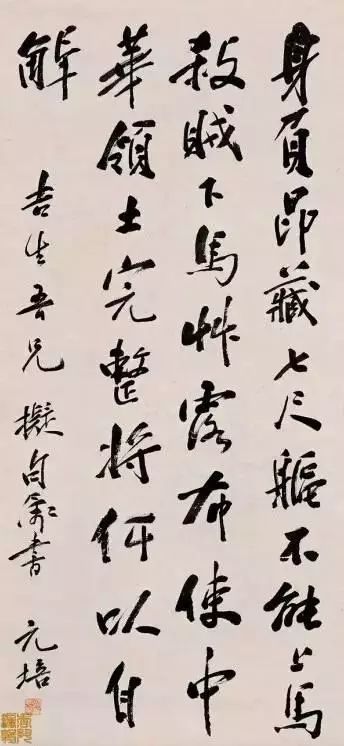 身負昂藏七尺軀不能上馬
殺賊下馬艸露布使中
華領土完整將何以自
解
吉生吾兄擬句屬書 元培